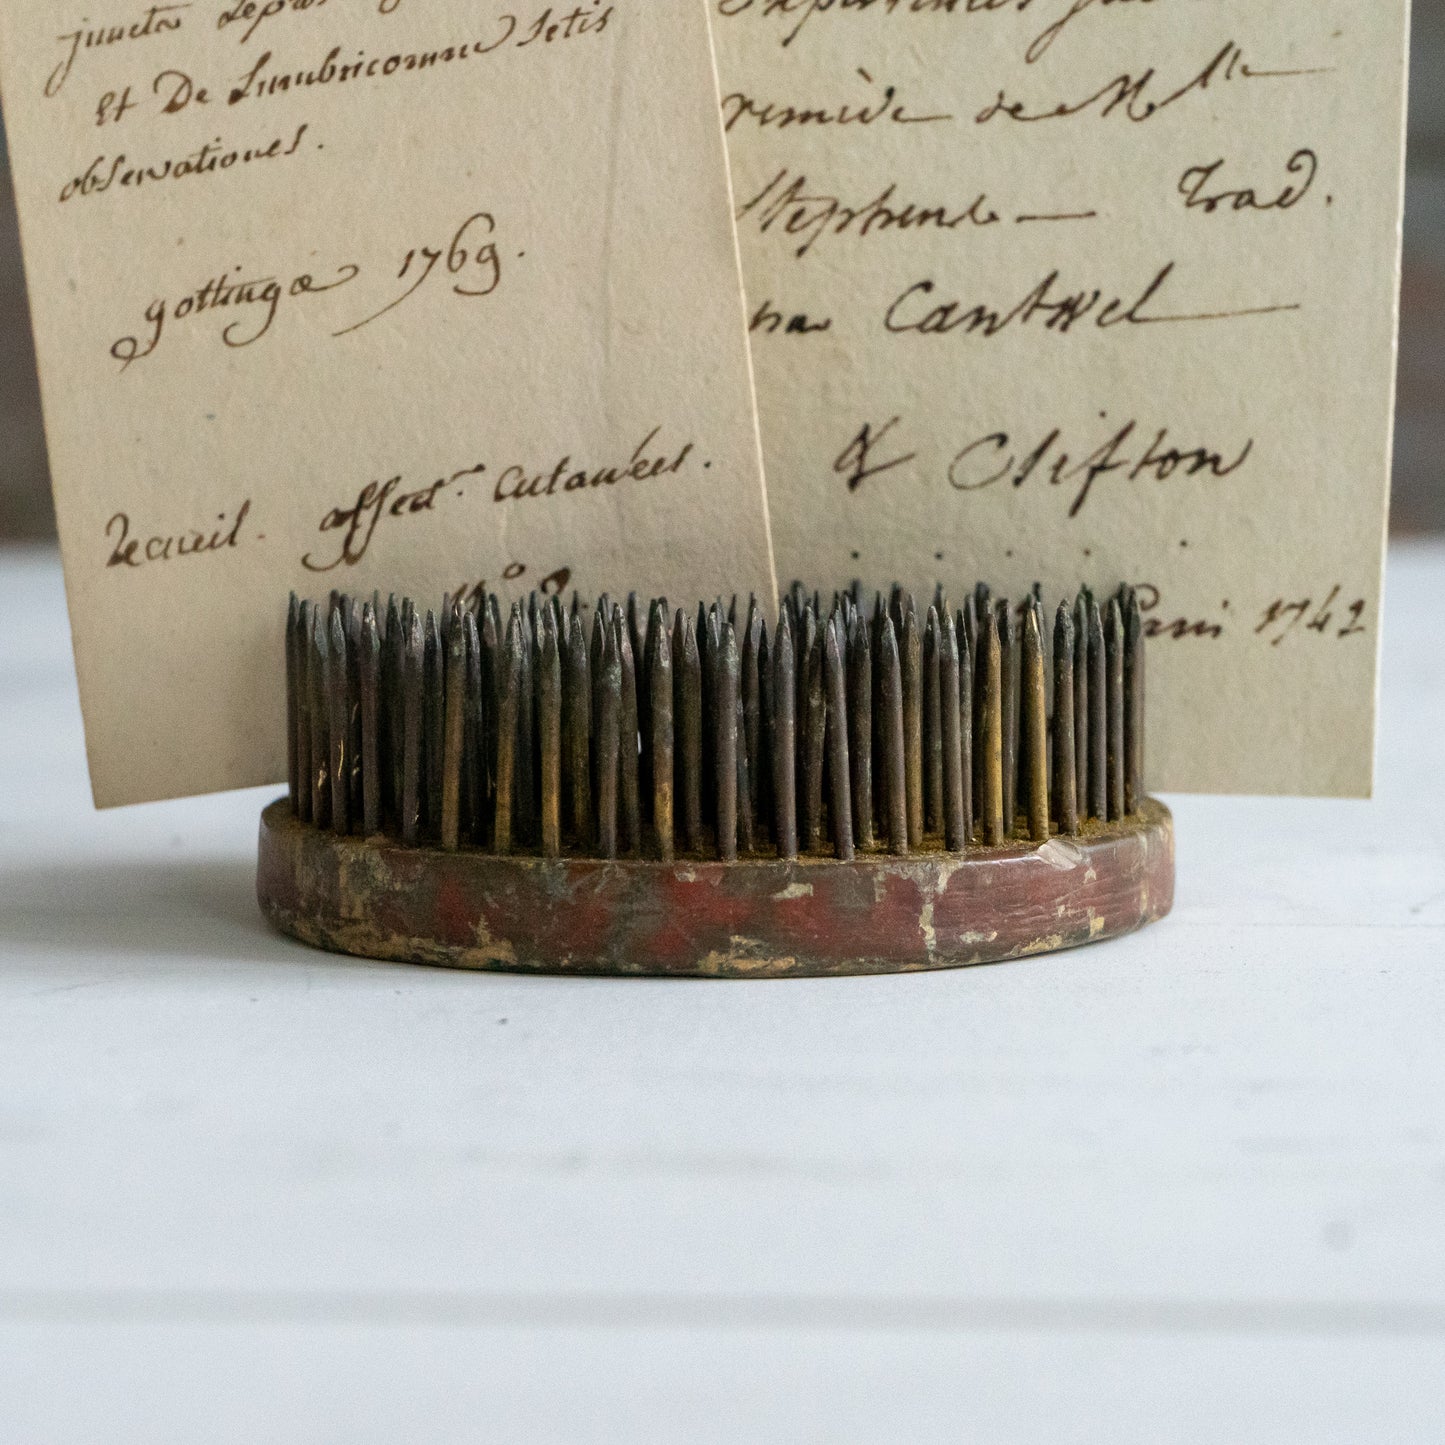 juncta Lepras
et De Lumbricorum Setis
observationes.
gottingæ 1769.
Recueil. affect. cutanées.
n° 2
expériences sur
remède de Mlle
Stephens — Trad.
par Cantwel
& Clifton
Paris 1742